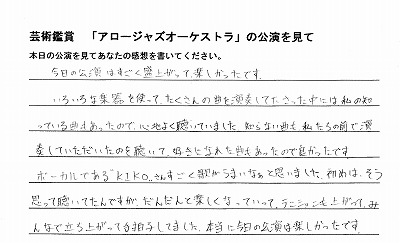 芸術鑑賞 「アロージャズオーケストラ」の公演を見て
本日の公演を見てあなたの感想を書いてください。
今日の公演はすごく盛上がって、楽しかったです。
いろいろな楽器を使って、たくさんの曲を演奏して下さった中には私の知
っている曲もあったので、心地よく聴いていました。知らない曲も私たちの前で演
奏していただいたのを聴いて、好きになれた曲もあったので良かったです
ボーカルである"KIKO"さんすごく歌がうまいなぁと思いました。初めは、そう
思って聴いてたんですが、だんだんと楽しくなっていって、テンションも上がって、み
んなで立ち上がって手拍子してました。本当に今日の公演は楽しかったです。